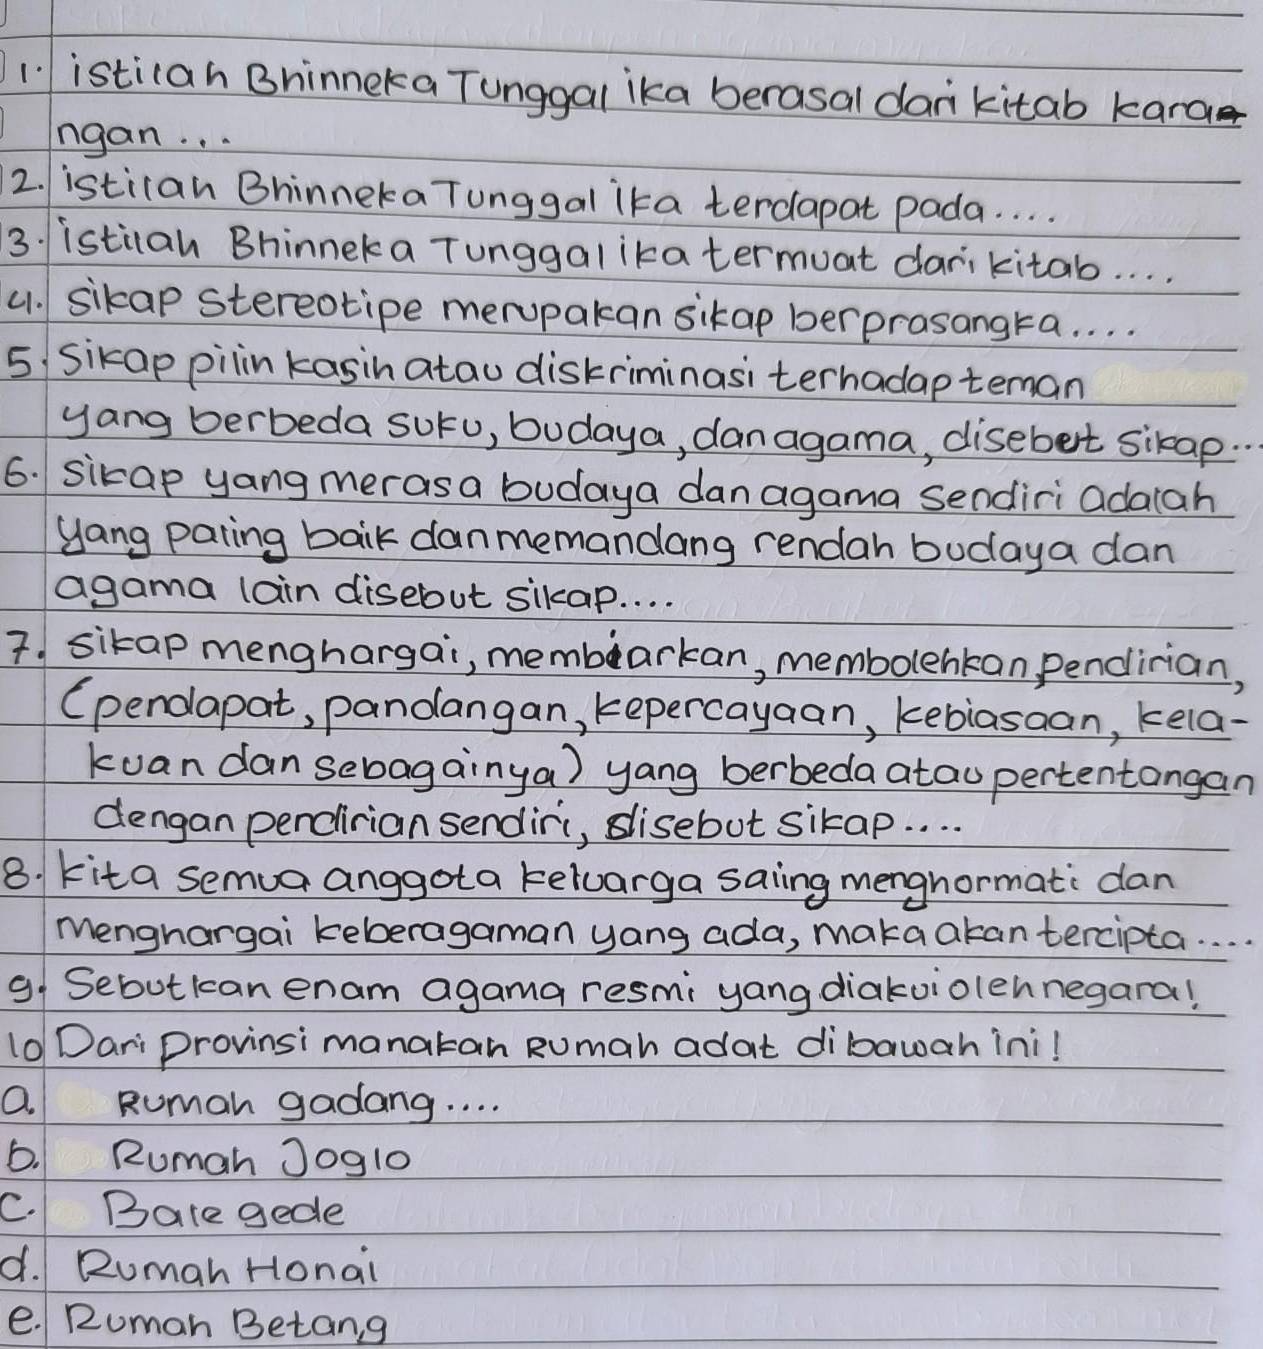 1. istilah Bhinneka Tunggal ika berasal dari kitab kara
ngan...
2. istilah Bhinneka Tunggal ika terdapat pada....
3. istilah Bhinneka Tunggal ika termuat dari kitab....
4. sikap stereotipe merupakan sikap berprasangka....
5. Sikap pilih kasih atau diskriminasi terhadap teman
yang berbeda suku, budaya, dan agama, disebut sikap...
6. sikap yang merasa budaya dan agama sendiri adalah
yang paling baik dan memandang rendah budaya dan
agama lain disebut sikap....
7. sikap menghargai, membiarkan, membolehkan, pendirian,
(pendapat, pandangan, kepercayaan, kebiasaan, kela-
kuan dan sebagainya) yang berbeda atau pertentangan
dengan pendirian sendiri, disebut sikap....
8. Kita semua anggota keluarga saling menghormati dan
menghargai keberagaman yang ada, maka akan tercipta....
9. Sebutkan enam agama resmi yang diakui oleh negara!
10 Dari provinsi manakah Rumah adat dibawah ini!
a. Rumah gadang....
b. Rumah Joglo
c. Bale gede
d. Rumah Honai
e. Rumah Betang